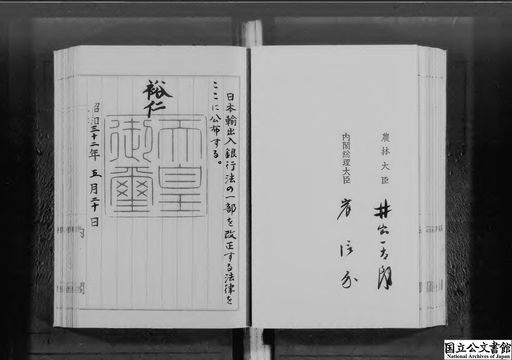 農林大臣
井出一太郎
内閣総理大臣
岸信介
日本輸出入銀行法の一部を改正する法律を
ここに公布する。
裕仁
天皇
御璽
昭和三十二年五月二十日
国立公文書館
National Archives of Japan